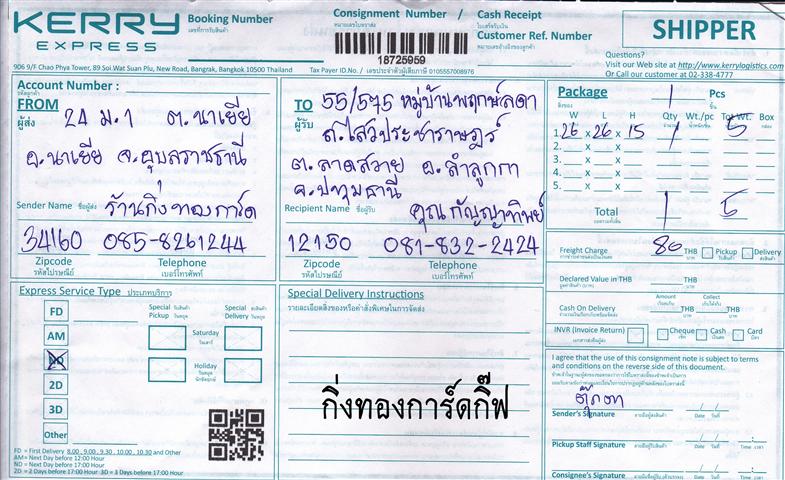 KERRY EXPRESS
Booking Number
เลขที่การรับสินค้า
Consignment Number /
หมายเลขใบตราส่ง
Cash Receipt
ใบเสร็จรับเงิน
Customer Ref. Number
หมายเลขอ้างอิงของลูกค้า
18725959
SHIPPER
Questions?
Visit our Web site at http://www.kerrylogistics.com/
Or Call our customer at 02-338-4777
906 9/F Chao Phya Tower, 89 Soi.Wat Suan Plu, New Road, Bangrak, Bangkok 10500 Thailand
Tax Payer ID.No. / เลขประจำตัวผู้เสียภาษี 0105557008976
Account Number :
รหัสลูกค้า
FROM
ผู้ส่ง
24 ม.1 ต.นาเยีย
อ.นาเยีย จ.อุบลราชธานี
Sender Name ชื่อผู้ส่ง ร้านกิ่งทองการ์ด
34160 085-8261244
Zipcode Telephone
รหัสไปรษณีย์ เบอร์โทรศัพท์
TO
ผู้รับ
55/575 หมู่บ้านพฤกษ์ลดา
ถ.ไสวประชาราษฎร์
ต.ลาดสวาย อ.ลำลูกกา
จ.ปทุมธานี
Recipient Name ชื่อผู้รับ คุณกัญญาทิพย์
12150 081-832-2424
Zipcode Telephone
รหัสไปรษณีย์ เบอร์โทรศัพท์
Package 1 Pcs
สิ่งของ ชิ้น
W L H Qty Wt./pc Tot Wt. Box
1. 26 x 26 x 15 1 5
2. x x
3. x x
4. x x
5. x x
Total 1 5
Freight Charge 80 THB Pickup Delivery
บาท รับสินค้า ส่งสินค้า
Declared Value in THB THB
บาท
Amount Collect
Cash On Delivery THB
บาท
INVR (Invoice Return) Cheque Cash Card
เช็ค เงินสด บัตร
Express Service Type ประเภทบริการ
FD
AM
ND
2D
3D
Other
Special Pickup รับสินค้า วันหยุด
Special Delivery ส่งสินค้า วันหยุด
Saturday
วันเสาร์
Holiday
วันหยุดนักขัตฤกษ์
FD = First Delivery 8.00 , 9.00 , 9.30 , 10.00 , 10.30 and Other
AM=Next Day before 12:00 Hour
ND = Next Day before 17:00 Hour
2D = 2 Days before 17:00 Hour 3D = 3 Days before 17:00 Hour
Special Delivery Instructions
รายละเอียดสิ่งของหรือคำสั่งพิเศษในการจัดส่ง
กิ่งทองการ์ดกิ๊ฟ
I agree that the use of this consignment note is subject to terms
and conditions on the reverse side of this document.
ตุ๊กตา
Sender's Signature ลายมือผู้ส่งสินค้า / / Date วันที่
Pickup Staff Signature ลายมือผู้รับสินค้า / / Date วันที่ Time เวลา
Consignee's Signature / / Date วันที่ Time เวลา